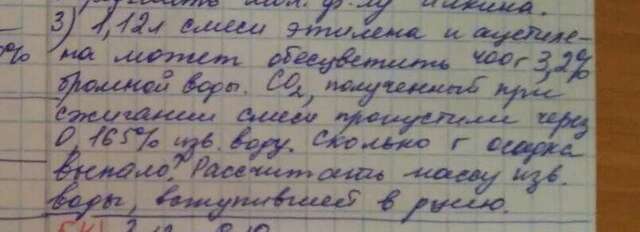 мол. ф-лу алкина.
3) 1,12л смеси этилена и ацетиле-
на может обесцветить 400г 3,2%
бромной воды. CO2, полученный при
сжигании смеси пропустили через
0,165% изв. воду. Сколько г осадка
выпало? Рассчитать массу изв.
воды, вступившей в р-цию.